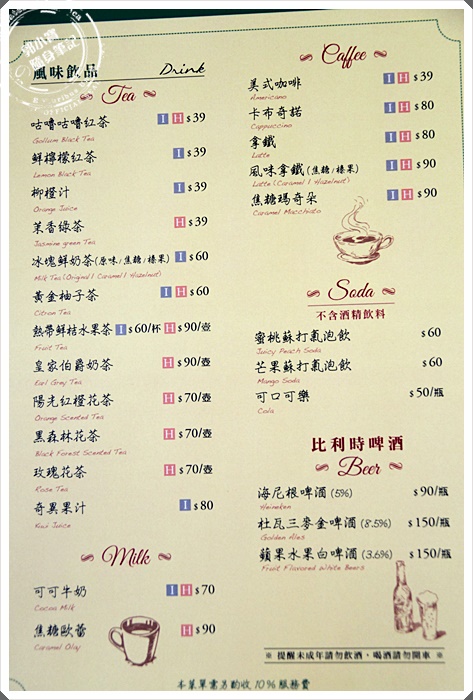 郭小寶
隨身筆記
風味飲品 Drink
Tea
咕嚕咕嚕紅茶 I H $39
Gollum Black Tea
鮮檸檬紅茶 I $39
Lemon Black Tea
柳橙汁 I $39
Orange Juice
茉香綠茶 H $39
Jasmine green Tea
冰塊鮮奶茶(原味/焦糖/榛果) I $60
Milk Tea (Original / Caramel / Hazelnut)
黃金柚子茶 I H $60
Citron Tea
熱帶鮮桔水果茶 I $60/杯 H $90/壺
Fruit Tea
皇家伯爵奶茶 H $90/壺
Earl Grey Tea
陽光紅橙花茶 H $70/壺
Orange Scented Tea
黑森林花茶 H $70/壺
Black Forest Scented Tea
玫瑰花茶 H $70/壺
Rose Tea
奇異果汁 I $80
Kiwi Juice
Milk
可可牛奶 I H $70
Cocoa Milk
焦糖歐蕾 H $90
Caramel Olay
Caffee
美式咖啡 I H $39
Americano
卡布奇諾 I H $80
Cappuccino
拿鐵 I H $80
Latte
風味拿鐵(焦糖/榛果) I H $90
Latte (Caramel / Hazelnut)
焦糖瑪奇朵 I H $90
Caramel Macchiato
Soda
不含酒精飲料
蜜桃蘇打氣泡飲 $60
Juicy Peach Soda
芒果蘇打氣泡飲 $60
Mango Soda
可口可樂 $50/瓶
Cola
比利時啤酒
Beer
海尼根啤酒 (5%) $90/瓶
Heineken
杜瓦三麥金啤酒 (8.5%) $150/瓶
Golden Ales
蘋果水果白啤酒 (3.6%) $150/瓶
Fruit Flavored White Beers
※ 提醒未成年請勿飲酒，喝酒請勿開車 ※
本菜單需另酌收 10% 服務費